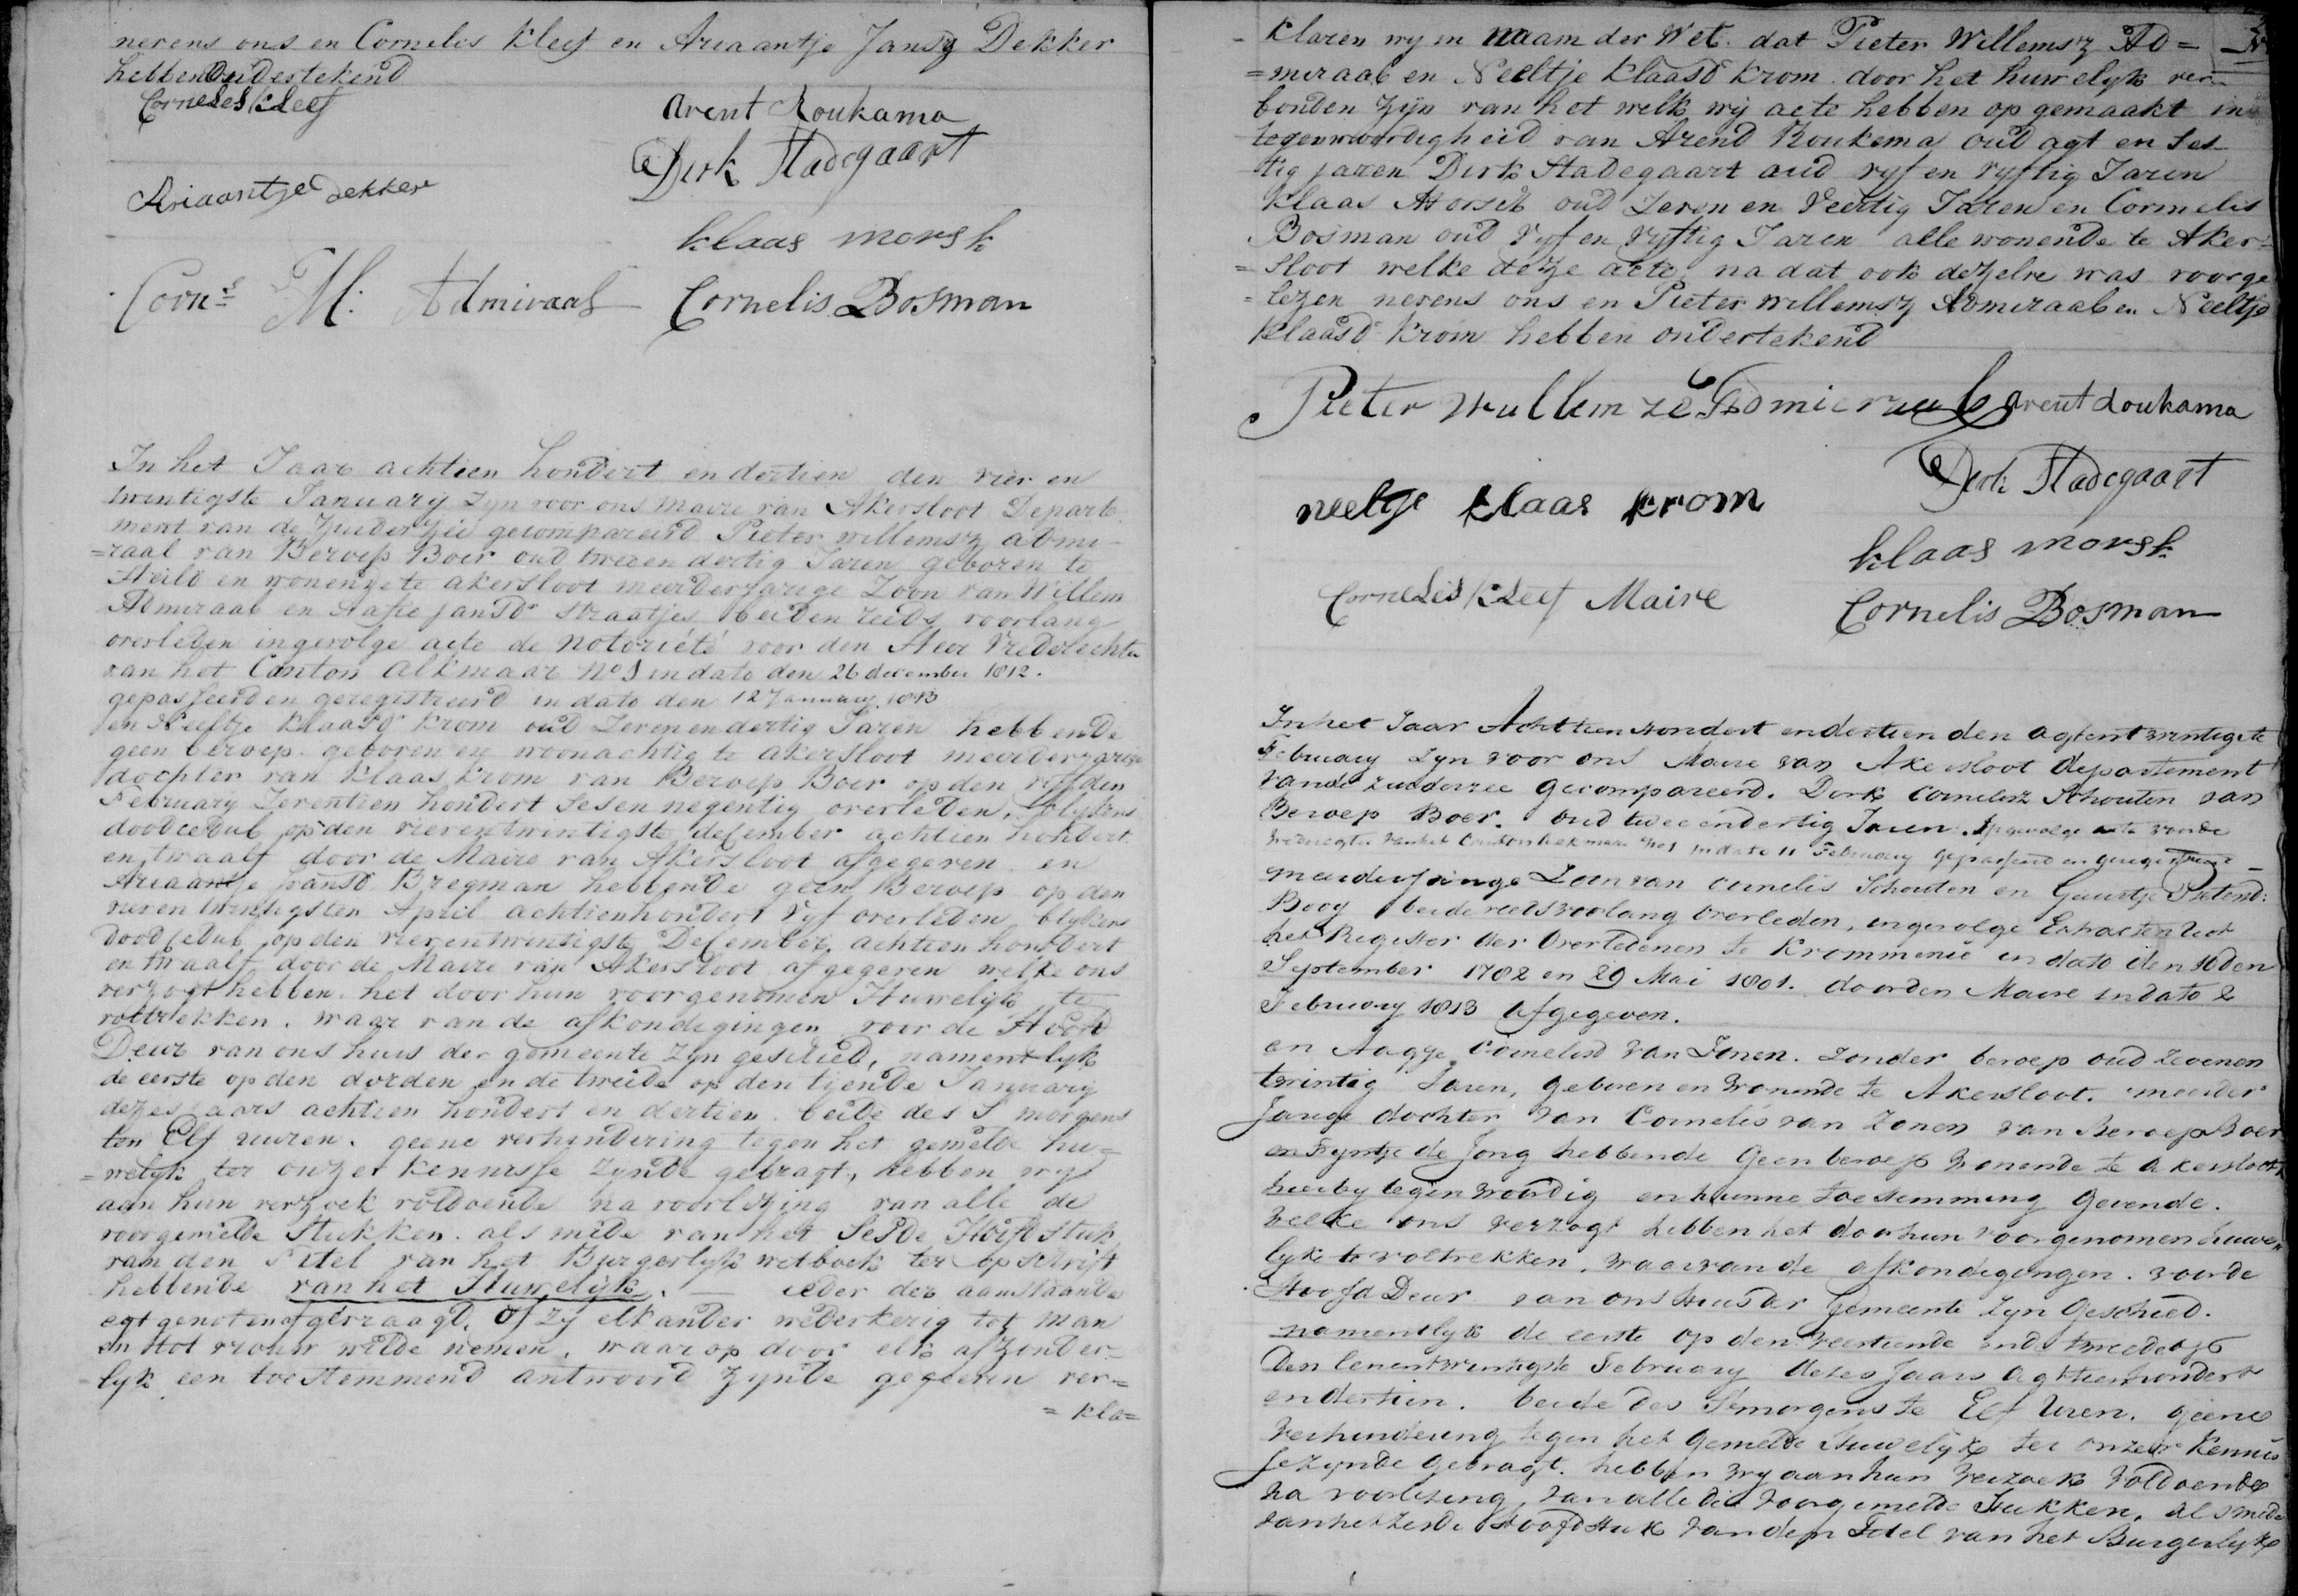 nevens ons en Cornelis Kleef en Ariaantje Jansz Dekker
hebben ondertekend
Cornelis Kleef
Arent Roukama
Dirk Stadegaart
Ariaantje Dekker
Klaas Morsk
Corns. M. Admiraal
Cornelis Bosman
In het Jaar achtien hondert en dertien den vier en
twintigste January zyn voor ons maire van Akersloot Departe
ment van de Zuiderzee gecompareerd Pieter willemsz admi-
=raal van Beroep Boer oud twee en dertig Jaren geboren te
en wonende te akersloot meerderjarige Zoon van Willem
Admiraal en Aafie Jansd Straatjes beiden reeds voorlang
overleden ingevolge acte de notoriété voor den Heer Vrederechter
van het Canton Alkmaar No 1 in dato den 26 december 1812.
gepasseerd en geregistreerd in dato den 12 January 1813
en Neeltje Klaasd Krom oud Zeven en dertig Jaren hebbende
geen beroep geboren en woonachtig te akersloot meerderjarige
dochter van Klaas Krom van Beroep Boer op den vyfden
February Zeventien hondert Ses en negentig overleden, blykens
doodcedul op den vierentwintigste december achtien hondert
en twaalf door de Maire van Akersloot afgegeven en
Ariaantje Jansd Bregman hebbende geen Beroep op den
vier en twintigsten April achtienhondert Vyf overleden blykens
Doodcedul op den vierentwintigste December achtien hondert
en twaalf door de Maire van Akersloot afgegeven welke ons
verzogt hebben het door hun voorgenomen Huwelyk te
voltrekken. waar van de afkondigingen voor de Hoofd
Deur van ons huis der gemeente zyn geschied, namentlyk
de eerste op den derden en de tweede op den tiende January
dezes jaars achtien hondert en dertien. beide des S morgens
ten Elf uuren. geene verhindering tegen het gemelde hu=
=welyk ter onzer kennisse zynde gebragt, hebben wy
aan hun verzoek voldoende na voorlezing van alle de
voorgemelde stukken als mede van het Sesde Hoofdstuk
van den Titel van het Burgerlyk wetboek ter opschrift
hebbende van het Huwelyk. — ieder der aanstaande
egtgenoten afgevraagd, of zy elkander wederkerig tot man
en tot vrouw wilde nemen, waar op door elk afzonder=
lyk een toestemmend antwoord zynde gegeven ver=
= kla=
Klaren wy in naam der Wet. dat Pieter Willemsz Ad=
=miraal en Neeltje Klaasd Krom door het huwelyk ver
bonden zyn van het welk wy acte hebben op gemaakt in
tegenwoordigheid van Arend Roukema oud agt en Ses
tig jaren Dirk Stadegaart oud vyf en vyftig Jaren
Klaas Morsch oud Zeven en Veertig Jaren en Cornelis
Bosman oud Vyf en Vyftig Jaren alle wonende te Aker=
=sloot welke deze acte, na dat ook dezelve was voorge
=lezen nevens ons en Pieter willemsz Admiraal en Neeltje
Klaasd Krom hebben ondertekend
Pieter Wullemze Admieraal Arent Roukama
Dirk Stadegaart
neeltje klaas krom
Klaas Morsk
Cornelis Kleef Maire
Cornelis Bosman
In het Jaar Achttien hondert en dertien den agtentwintigste
February Zyn voor ons Maire van Akersloot departement
Vande Zuiderzee Gecompareerd. Dirk Cornelisz Schouten van
Beroep Boer. oud twee en dertig Jaren. Ingevolge acte voorde
Vrederegter van het Canton No 1 in dato 11 February Gepasseerd en geregistreerd
meerderjarige Zoon van Cornelis Schouten en Guurtje Pietersd:
Booy beide reets voorlang Overleden, ingevolge Extracten uit
het Register der Overledenen te Krommenie in dato den 16den
September 1782 en 29 Mai 1801. door den Maire in dato 2
February 1813 Afgegeven.
en Aagje Cornelisd van Zonen. Zonder beroep oud Zevenen
twintig Jaren, geboren en wonende te Akersloot. meerder
Jarige dochter van Cornelis van Zonen van Beroep Boer
en Fyntje de Jong hebbende Geen beroep wonende te Akersloot,
hierby tegenwoordig en hunne toestemming Gevende.
welke ons verzogt hebben het door hun voorgenomen Huwe=
lyk te voltrekken, waar van de afkondigingen. voorde
Hoofd Deur van ons Huis der Gemeente zyn Geschied.
namentlyk de eerste op den veertiende en de tweede op
Den eenentwintigste February dezes Jaars Agttienhondert
en dertien. beide des Smorgens te Elf Uren. geene
Verhindering tegen het gemelde Huwelyk ter onzer Kennis
se zynde Gebragt. hebben wy aan hun verzoek Voldoende
Na voorlezing, van alle de voorgemelde Stukken, als mede
van het Zesde Hoofdstuk van den Titel van het Burgerlyk